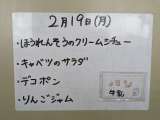 2月19日(月)
・ほうれんそうのクリームシチュー
・キャベツのサラダ
・デコポン
・りんごジャム
牛乳